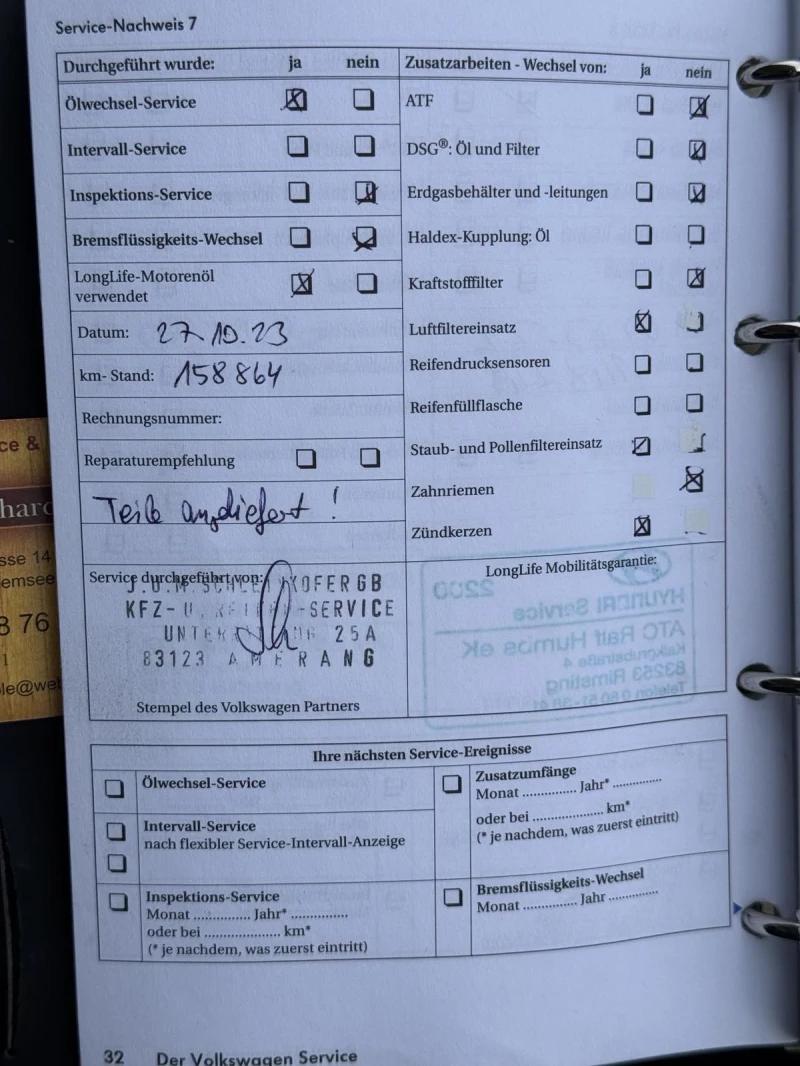 Service-Nachweis 7
Durchgeführt wurde: ja nein
Ölwechsel-Service
Intervall-Service
Inspektions-Service
Bremsflüssigkeits-Wechsel
LongLife-Motorenöl
verwendet
Datum: 27.10.23
km- Stand: 158 864
Rechnungsnummer:
Reparaturempfehlung
Teile angeliefert !
Service durchgeführt von:
KOFER GB
KFZ- -SERVICE
25A
83123 AMERANG
Stempel des Volkswagen Partners
Zusatzarbeiten - Wechsel von: ja nein
ATF
DSG®: Öl und Filter
Erdgasbehälter und -leitungen
Haldex-Kupplung: Öl
Kraftstofffilter
Luftfiltereinsatz
Reifendrucksensoren
Reifenfüllflasche
Staub- und Pollenfiltereinsatz
Zahnriemen
Zündkerzen
LongLife Mobilitätsgarantie:
Ihre nächsten Service-Ereignisse
Ölwechsel-Service
Intervall-Service
nach flexibler Service-Intervall-Anzeige
Inspektions-Service
Monat ............. Jahr* .............
oder bei ..................... km*
(* je nachdem, was zuerst eintritt)
Zusatzumfänge
Monat ............. Jahr* .............
oder bei ..................... km*
(* je nachdem, was zuerst eintritt)
Bremsflüssigkeits-Wechsel
Monat ............. Jahr .............
32 Der Volkswagen Service
ce &
hard
sse 14
emsee
8 76
1
le@web